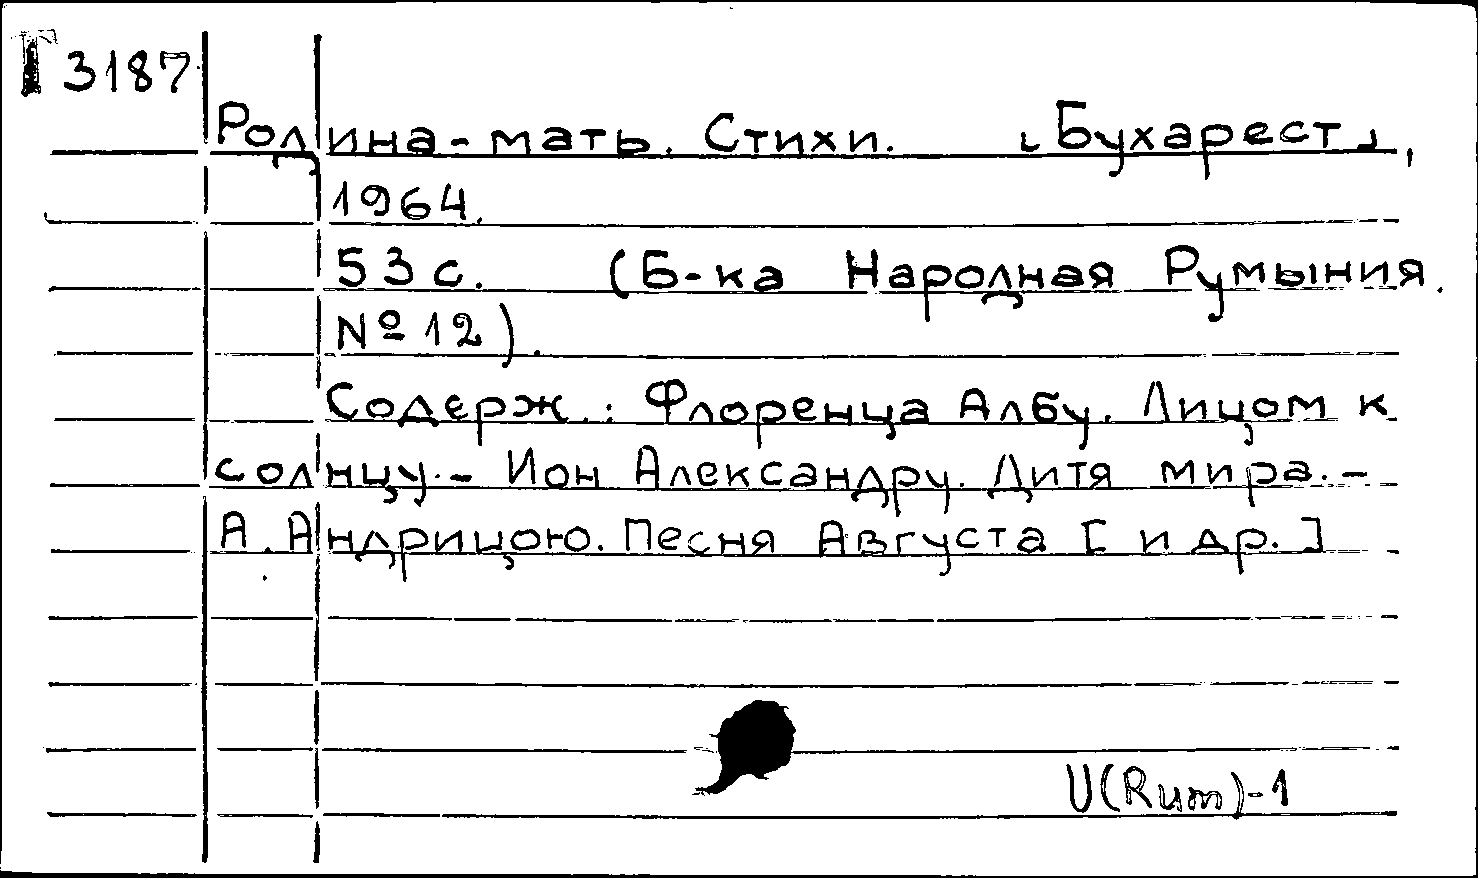 Г 3187
Родина-мать. Стихи. [Бухарест],
1964.
53 с. (Б-ка Народная Румыния.
№ 12).
Содерж.: Флоренца Албу. Лицом к
солнцу.- Ион Александру. Дитя мира.-
А. Андрицою. Песня Августа [и др.]
U(Rum)-1